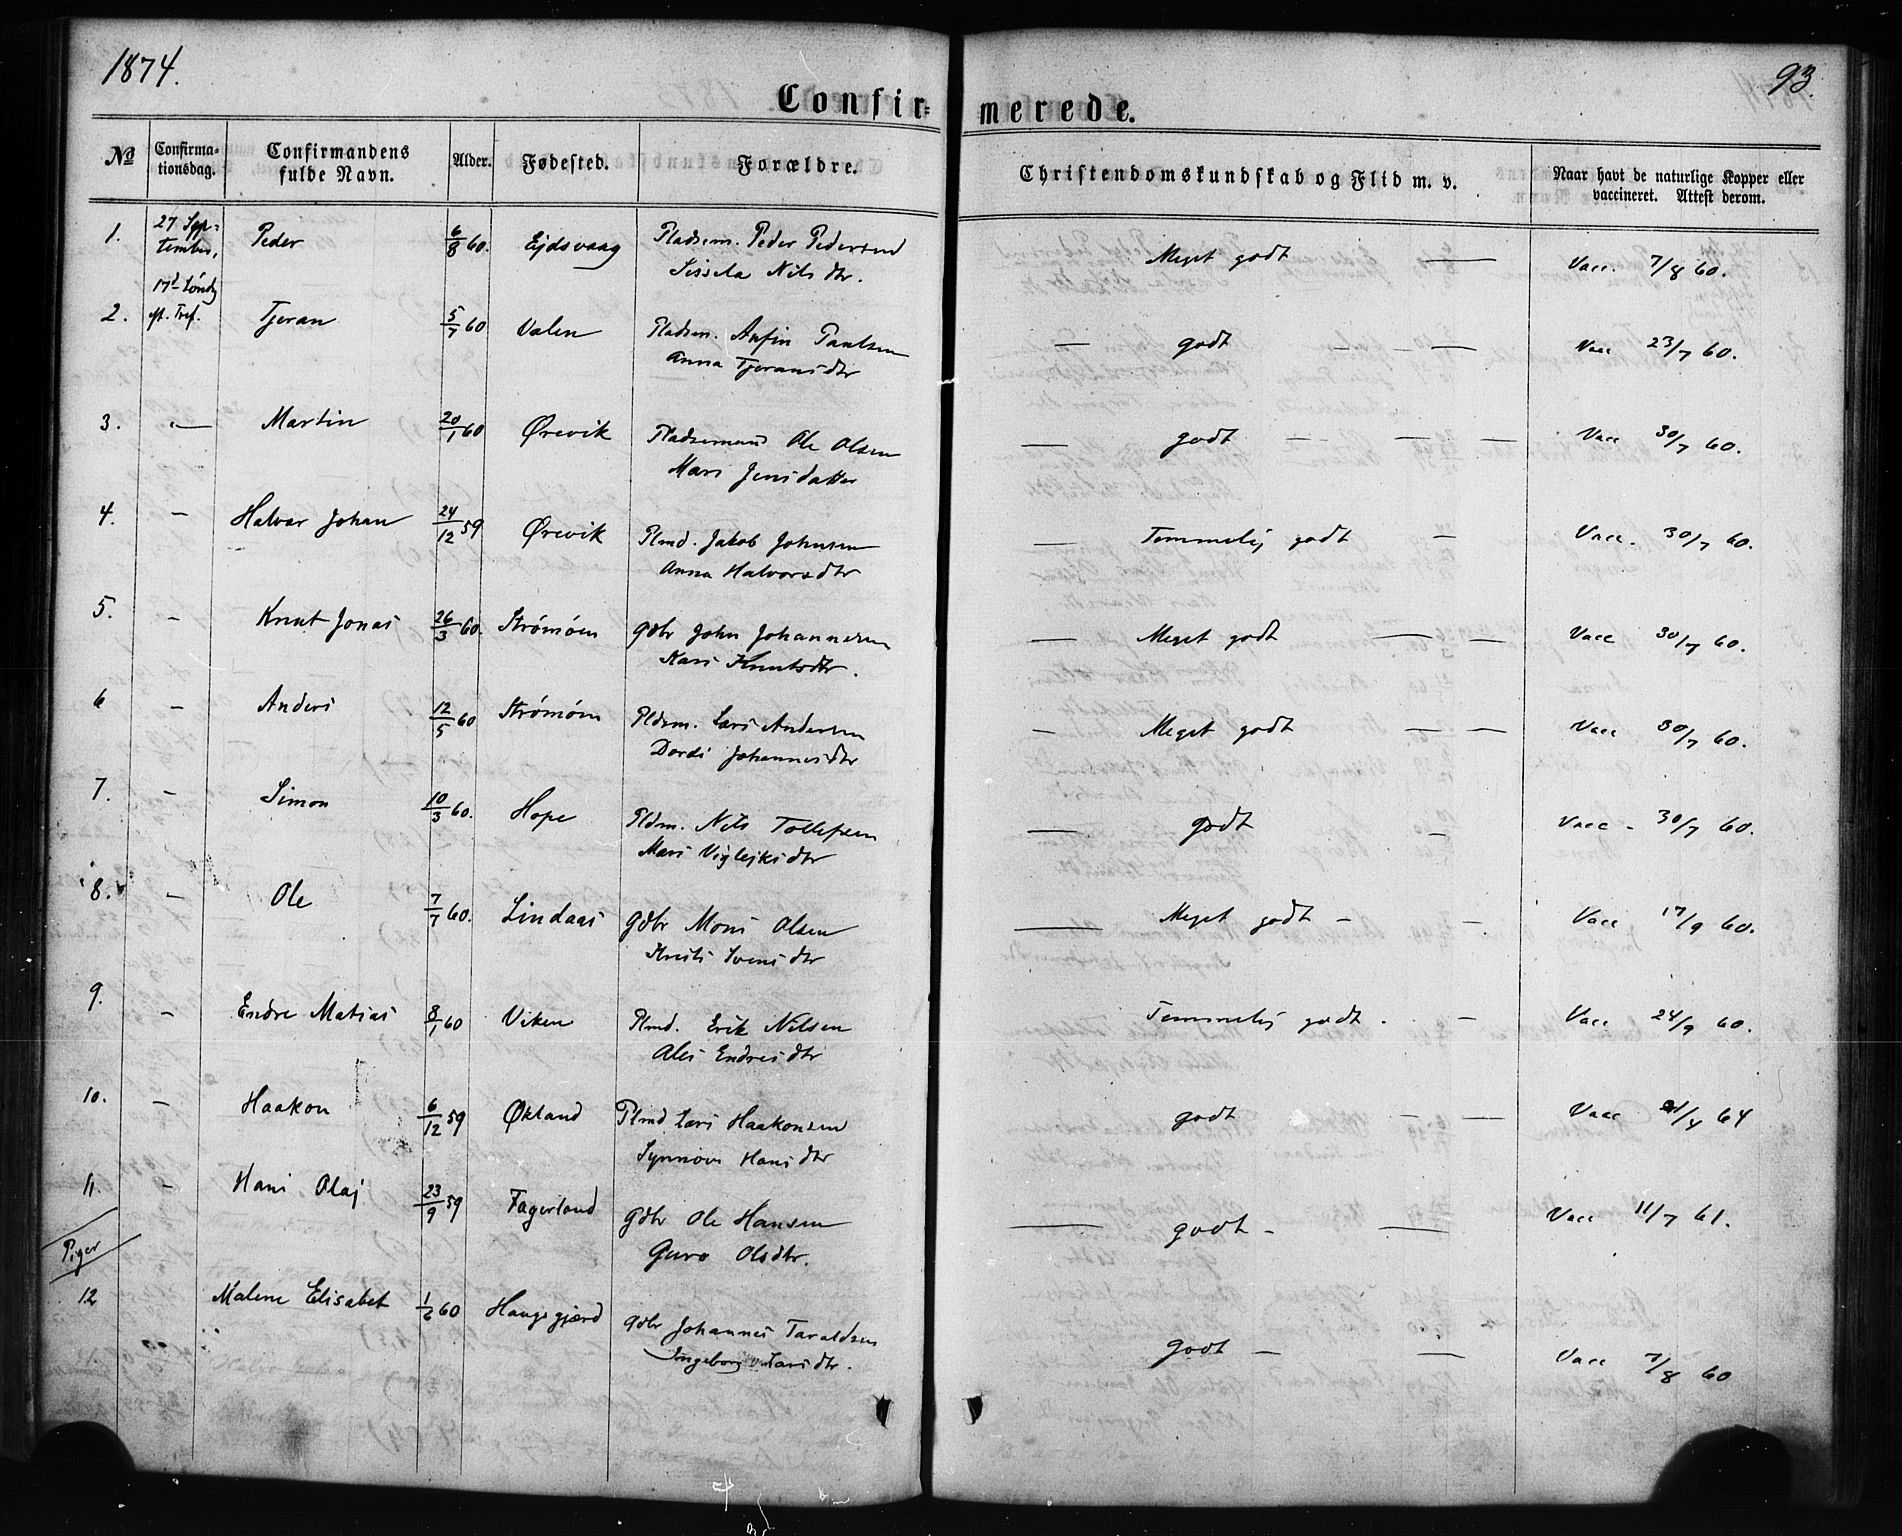 1874.
93.
Confir= merede.
No
Confirma-
tionsdag.
Confirmandens
fulde Navn.
Alder.
Fødested.
Forældre.
Christendomskundskab og Flid m. v.
Naar havt de naturlige Kopper eller
vaccineret. Attest derom.
1. 27 Sep- Peder 6/8 60. Ejdsvaag Pladsem. Peder Pedersen — Meget godt — Vacc. 7/8 60.
tember, Sissela Nilsdtr.
17d Søndg
2. eft. Tref. Tjeran 5/7 60 Valen Pladsm. Anfin Paulsen — godt — — — Vacc 23/7 60.
Anna Tjeransdtr
3. — Martin 20/1 60 Ørevik Pladsemand Ole Olsen — godt — — — Vacc 30/7 60.
Mari Jensdatter
4. — Halvar Johan 24/12 59 Ørevik Plmd. Jakob Johnsen — Temmelig godt — Vacc. 30/7 60.
Anna Halvorsdtr
5. — Knut Jonas 26/3 60. Strømøen Gdbr John Johannesen — Meget godt — — Vacc 30/7 60.
Kari Knutsdtr.
6 — Anders 12/5 60 Strømøen Pldsm. Lars Andersen — Meget godt — — Vacc 30/7 60.
Dordi Johannesdtr
7. — Simon 10/3 60. Hope Pldm. Nils Tollefsen — godt — Vacc - 30/7 60.
Mari Viglejksdtr
8. — Ole 7/7 60. Lindaas Gdbr Mons Olsen — Meget godt — — Vacc 17/9 60.
Kristi Svensdtr
9. — Endre Matias 8/1 60 Viken Plmd. Erik Nilsen Temmelig godt. — Vacc 24/9 60.
Ales Endresdtr
10. — Haakon 6/12 59 Økland Plmd Lars Haakonsen godt — — Vacc /4 64
Synnøve Hansdtr
11. — Hans Olaj 23/9 59 Fagerland Gdbr Ole Hansen — godt - — Vacc 11/7 61.
Guro Olsdtr.
Piger
12 Malene Elisabet 1/6 60 Haugsgjærd Gdbr Johannes Taraldsen godt — — Vacc 7/8 60
Ingeborg Larsdtr.